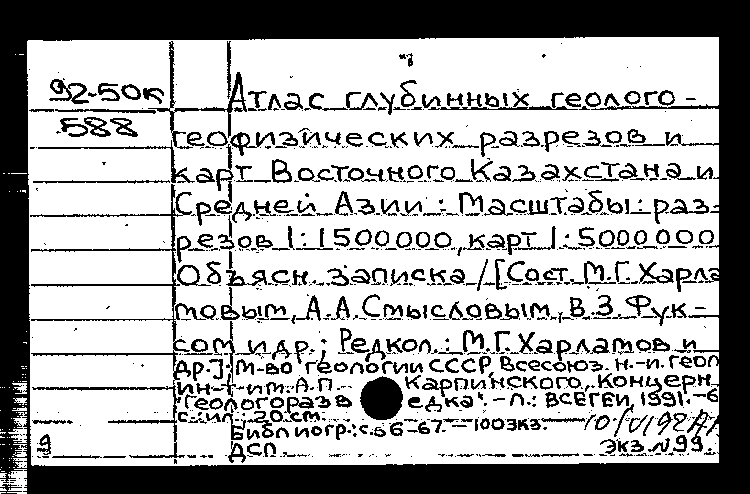 92-50к
588
Атлас глубинных геолого-
геофизических разрезов и
карт Восточного Казахстана и
Средней Азии: Масштабы: раз-
резов 1:1500000, карт 1:5000000
Объясн. записка /[Сост. М.Г. Харла
мовым, А.А. Смысловым, В.З. Фук-
сом и др.; Редкол.: М.Г. Харламов и
др.]; М-во геологии СССР, Всесоюз. н.-и. геол
ин-т им. А.П. Карпинского, Концерн
"Геологоразведка". – Л.: ВСЕГЕИ, 1991. – 6
с.: ил.; 20 см.
Библиогр.: с. 66-67. – 100 экз.
ДСП.
экз. №99.
9